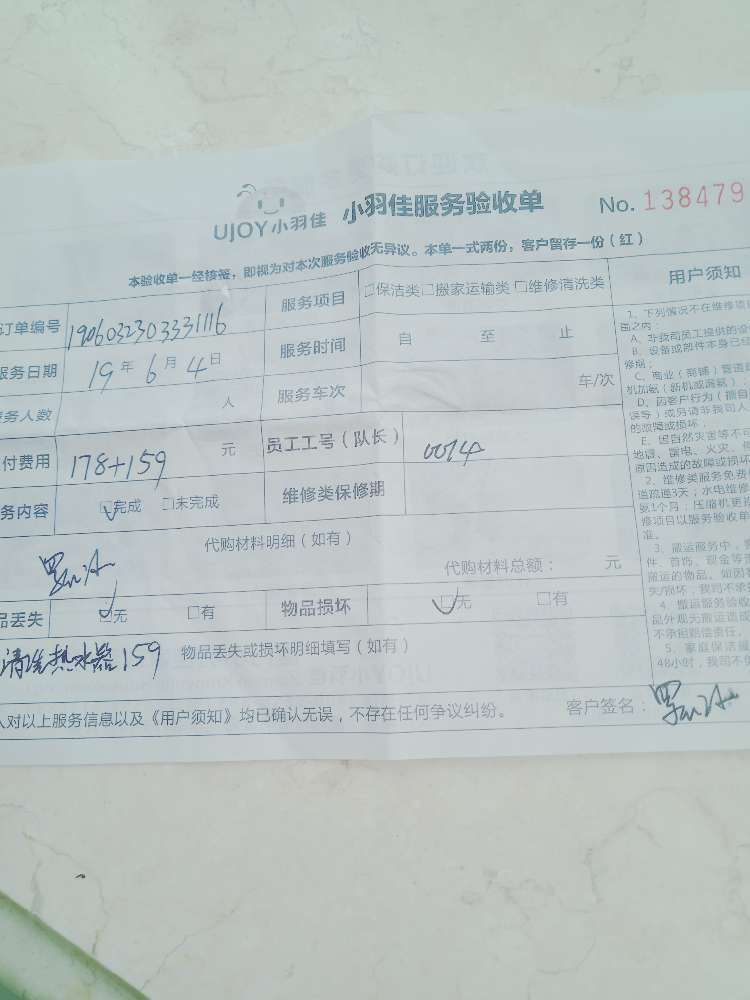 UJOY小羽佳 小羽佳服务验收单 No. 138479
本验收单一经核签，即视为对本次服务验收无异议。本单一式两份，客户留存一份（红）
订单编号 1906032303331116 服务项目 □保洁类□搬家运输类□维修清洗类 用户须知
服务日期 19年6月4日 服务时间 自 至 止
务人数 人 服务车次 车/次
付费用 178+159 元 员工工号（队长） 0074
务内容 □完成 □未完成 维修类保修期
代购材料明细（如有）
代购材料总额： 元
品丢失 □无 □有 物品损坏 □无 □有
清洗热水器159 物品丢失或损坏明细填写（如有）
人对以上服务信息以及《用户须知》均已确认无误，不存在任何争议纠纷。 客户签名：
1、下列情况不在维修项
围之内：
A、非我司员工提供的设
B、设备或部件本身已经
修期；
C、商业（商铺）管道
机加氨（新机或漏氨）
D、因客户行为（擅自
误等）或另请非我司人
的故障或损坏；
E、因自然灾害等不可
地震、雷电、火灾、
原因造成的故障或损坏
2、维修类服务免费
道疏通3天；水电维修
装1个月；压缩机更换
修项目以服务验收单
准。
3、搬运服务中，
件、首饰、现金等
搬运的物品。如因
失/损坏，我司不承担
4、搬运服务验收
品外观无搬运造成
不承担赔偿责任。
5、家庭保洁服
48小时，我司不